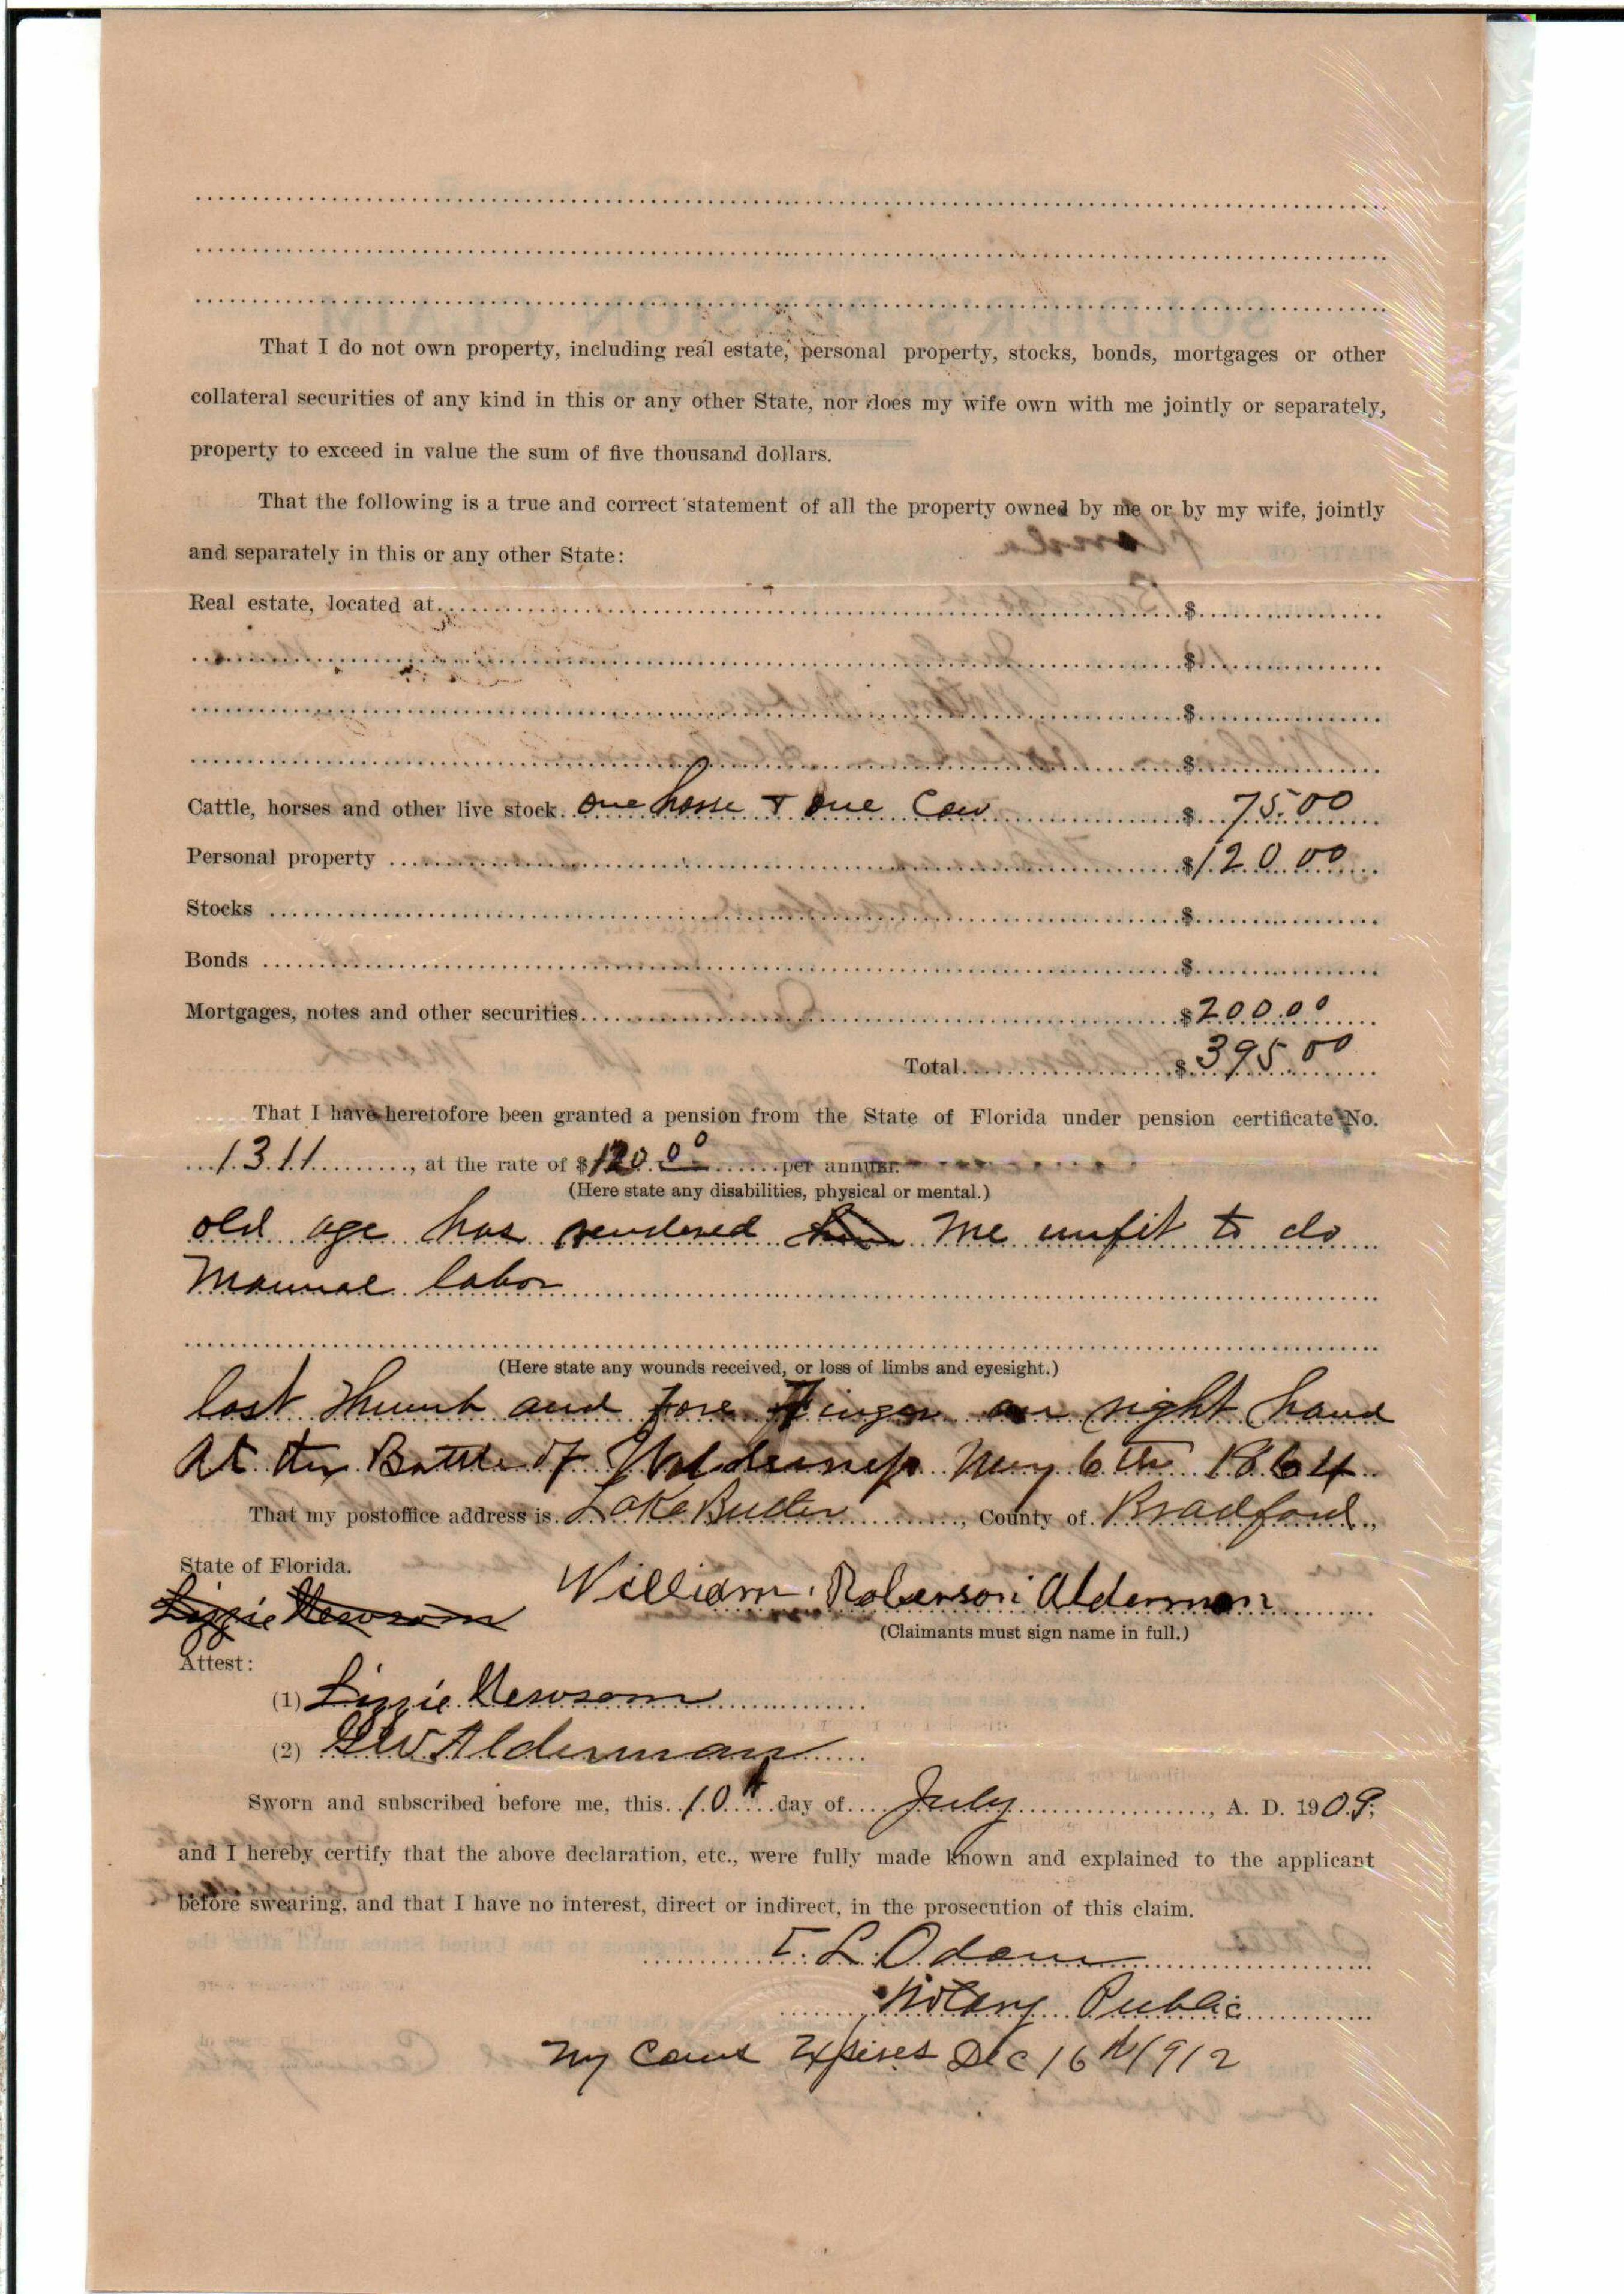 That I do not own property, including real estate, personal property, stocks, bonds, mortgages or other
collateral securities of any kind in this or any other State, nor does my wife own with me jointly or separately,
property to exceed in value the sum of five thousand dollars.
That the following is a true and correct statement of all the property owned by me or by my wife, jointly
and separately in this or any other State:
Real estate, located at $
$
$
$
Cattle, horses and other live stock. one horse & one Cow $ 75.00
Personal property $120.00
Stocks $
Bonds $
Mortgages, notes and other securities $200.00
Total $395.00
That I have heretofore been granted a pension from the State of Florida under pension certificate No.
1311, at the rate of $120.00 per annum.
(Here state any disabilities, physical or mental.)
old age has rendered him me unfit to do
Manual labor
(Here state any wounds received, or loss of limbs and eyesight.)
lost thumb and fore Finger on right hand
At the Battle of Wilderness May 6th 1864
That my postoffice address is Lake Butler, County of Bradford,
State of Florida.
Lizzie Newsom William Roberson Alderman
(Claimants must sign name in full.)
Attest:
(1) Lizzie Newsom
(2) GW Alderman
Sworn and subscribed before me, this 10th day of July, A. D. 1909;
and I hereby certify that the above declaration, etc., were fully made known and explained to the applicant
before swearing, and that I have no interest, direct or indirect, in the prosecution of this claim.
L. Odom
Notary Public
My Coms Expires Dec 16th 1912